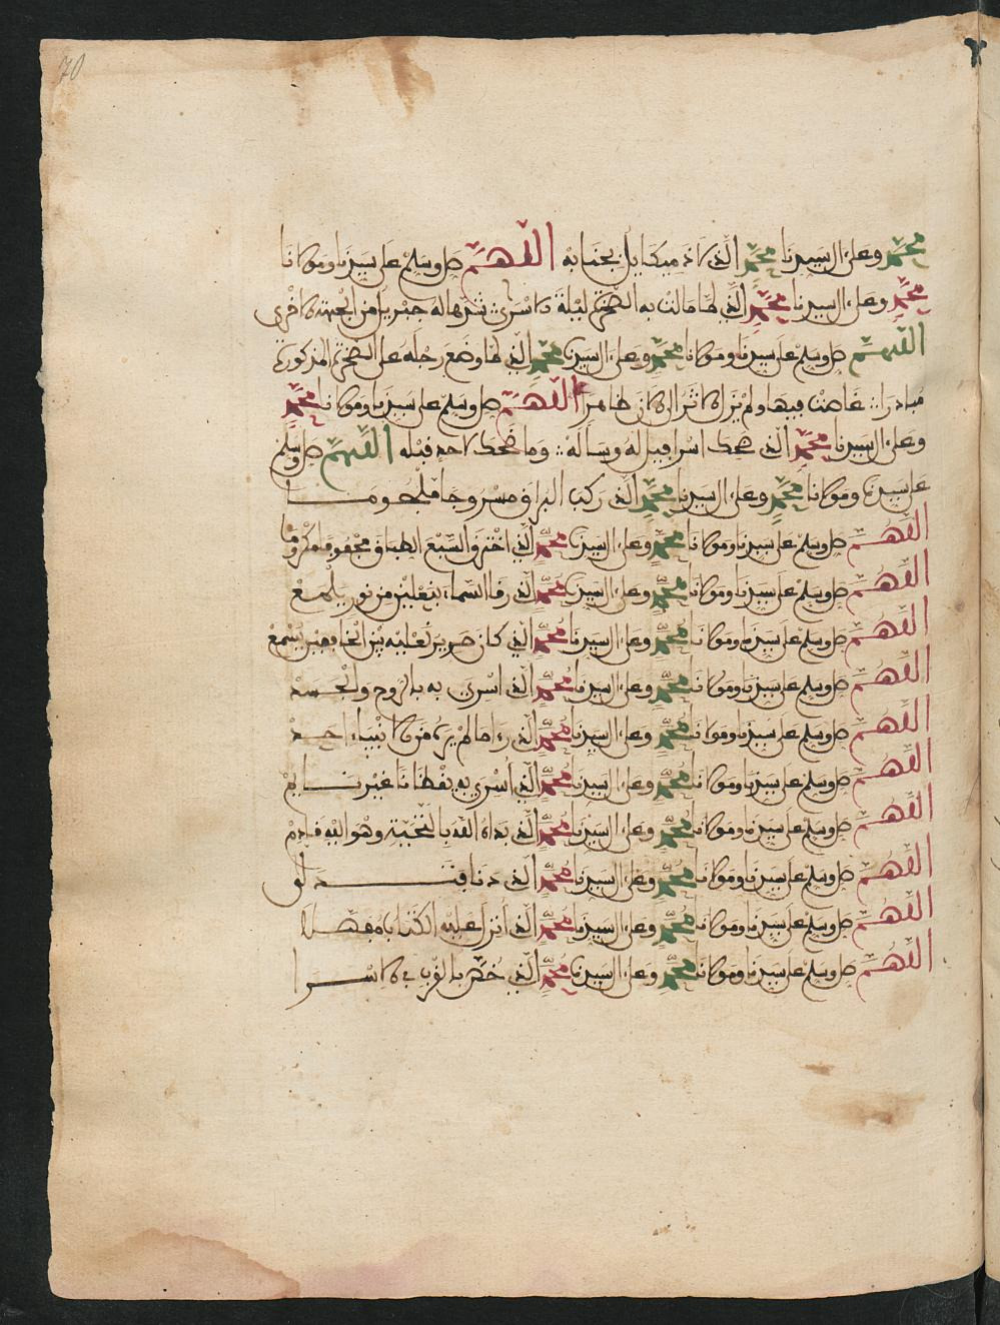 70
محمد وعلى ءال سيدنا محمد الذي لاذ ميكايل بجنابه اللهم صل وسلم على سيدنا ومولانا
محمد وعلى ءال سيدنا محمد الذي لما مالت به الصخرة ليلة الاسرى نزها له جبريل من الجهة الاخرى
اللهم صل وسلم على سيدنا ومولانا محمد وعلى ءال سيدنا محمد الذي لما وضع رجله على الصخرة المذكورة
غاصت فيها ولم يزل الاثر الى الان ظاهرا اللهم صل وسلم على سيدنا ومولانا محمد
وعلى ءال سيدنا محمد الذي ضحك اسرافيل له وساله وما ضحك لاحد قبله اللهم صل وسلم
على سيدنا ومولانا محمد وعلى ءال سيدنا محمد الذي ركب البراق مسروجا ملجوما
اللهم صل وسلم على سيدنا ومولانا محمد وعلى ءال سيدنا محمد الذي اخترق السبع الطباق
اللهم صل وسلم على سيدنا ومولانا محمد وعلى ءال سيدنا محمد الذي رقا السماء بنعلين من نور يلمع
اللهم صل وسلم على سيدنا ومولانا محمد وعلى ءال سيدنا محمد الذي كان صرير نعليه بين الخافقين يسمع
اللهم صل وسلم على سيدنا ومولانا محمد وعلى ءال سيدنا محمد الذي اسري به بالروح والجسد
اللهم صل وسلم على سيدنا ومولانا محمد وعلى ءال سيدنا محمد الذي رءا ما لم يره من الانبياء احد
اللهم صل وسلم على سيدنا ومولانا محمد وعلى ءال سيدنا محمد الذي اسري به يقظانا غير نايم
اللهم صل وسلم على سيدنا ومولانا محمد وعلى ءال سيدنا محمد الذي بداه الله بالتحية وهو اليه قادم
اللهم صل وسلم على سيدنا ومولانا محمد وعلى ءال سيدنا محمد الذي دنا فتدلى
اللهم صل وسلم على سيدنا ومولانا محمد وعلى ءال سيدنا محمد الذي انزل عليه الكتاب مفصلا
اللهم صل وسلم على سيدنا ومولانا محمد وعلى ءال سيدنا محمد الذي خص بالقرب في الاسرا